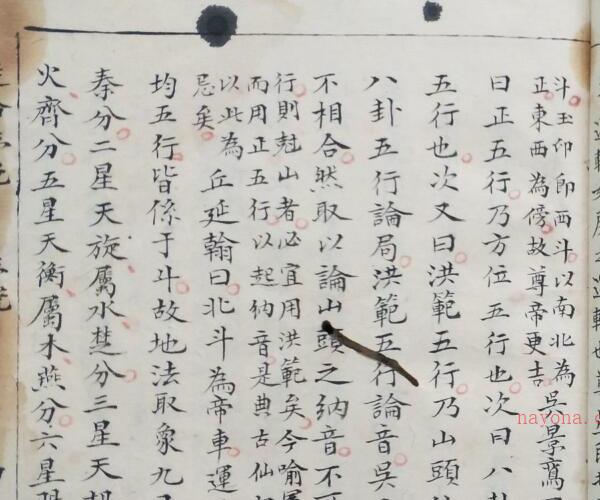 斗玉印即西斗以南北為
正東西為傍故尊帝更吉
吳景鸞
曰正五行乃方位五行也次曰八卦
五行也次又曰洪範五行乃山頭
八卦五行論局洪範五行論音吳
不相合然取以論山頭之納音不
行則尅山者必宜用洪範矣今喻
而用正五行以起納音是典古仙
以此為
忌矣
丘延翰曰北斗為帝車運
均五行皆係于斗故地法取象九
秦分二星天旋屬水楚分三星天
火齊分五星天衡屬木燕分六星
nayona.